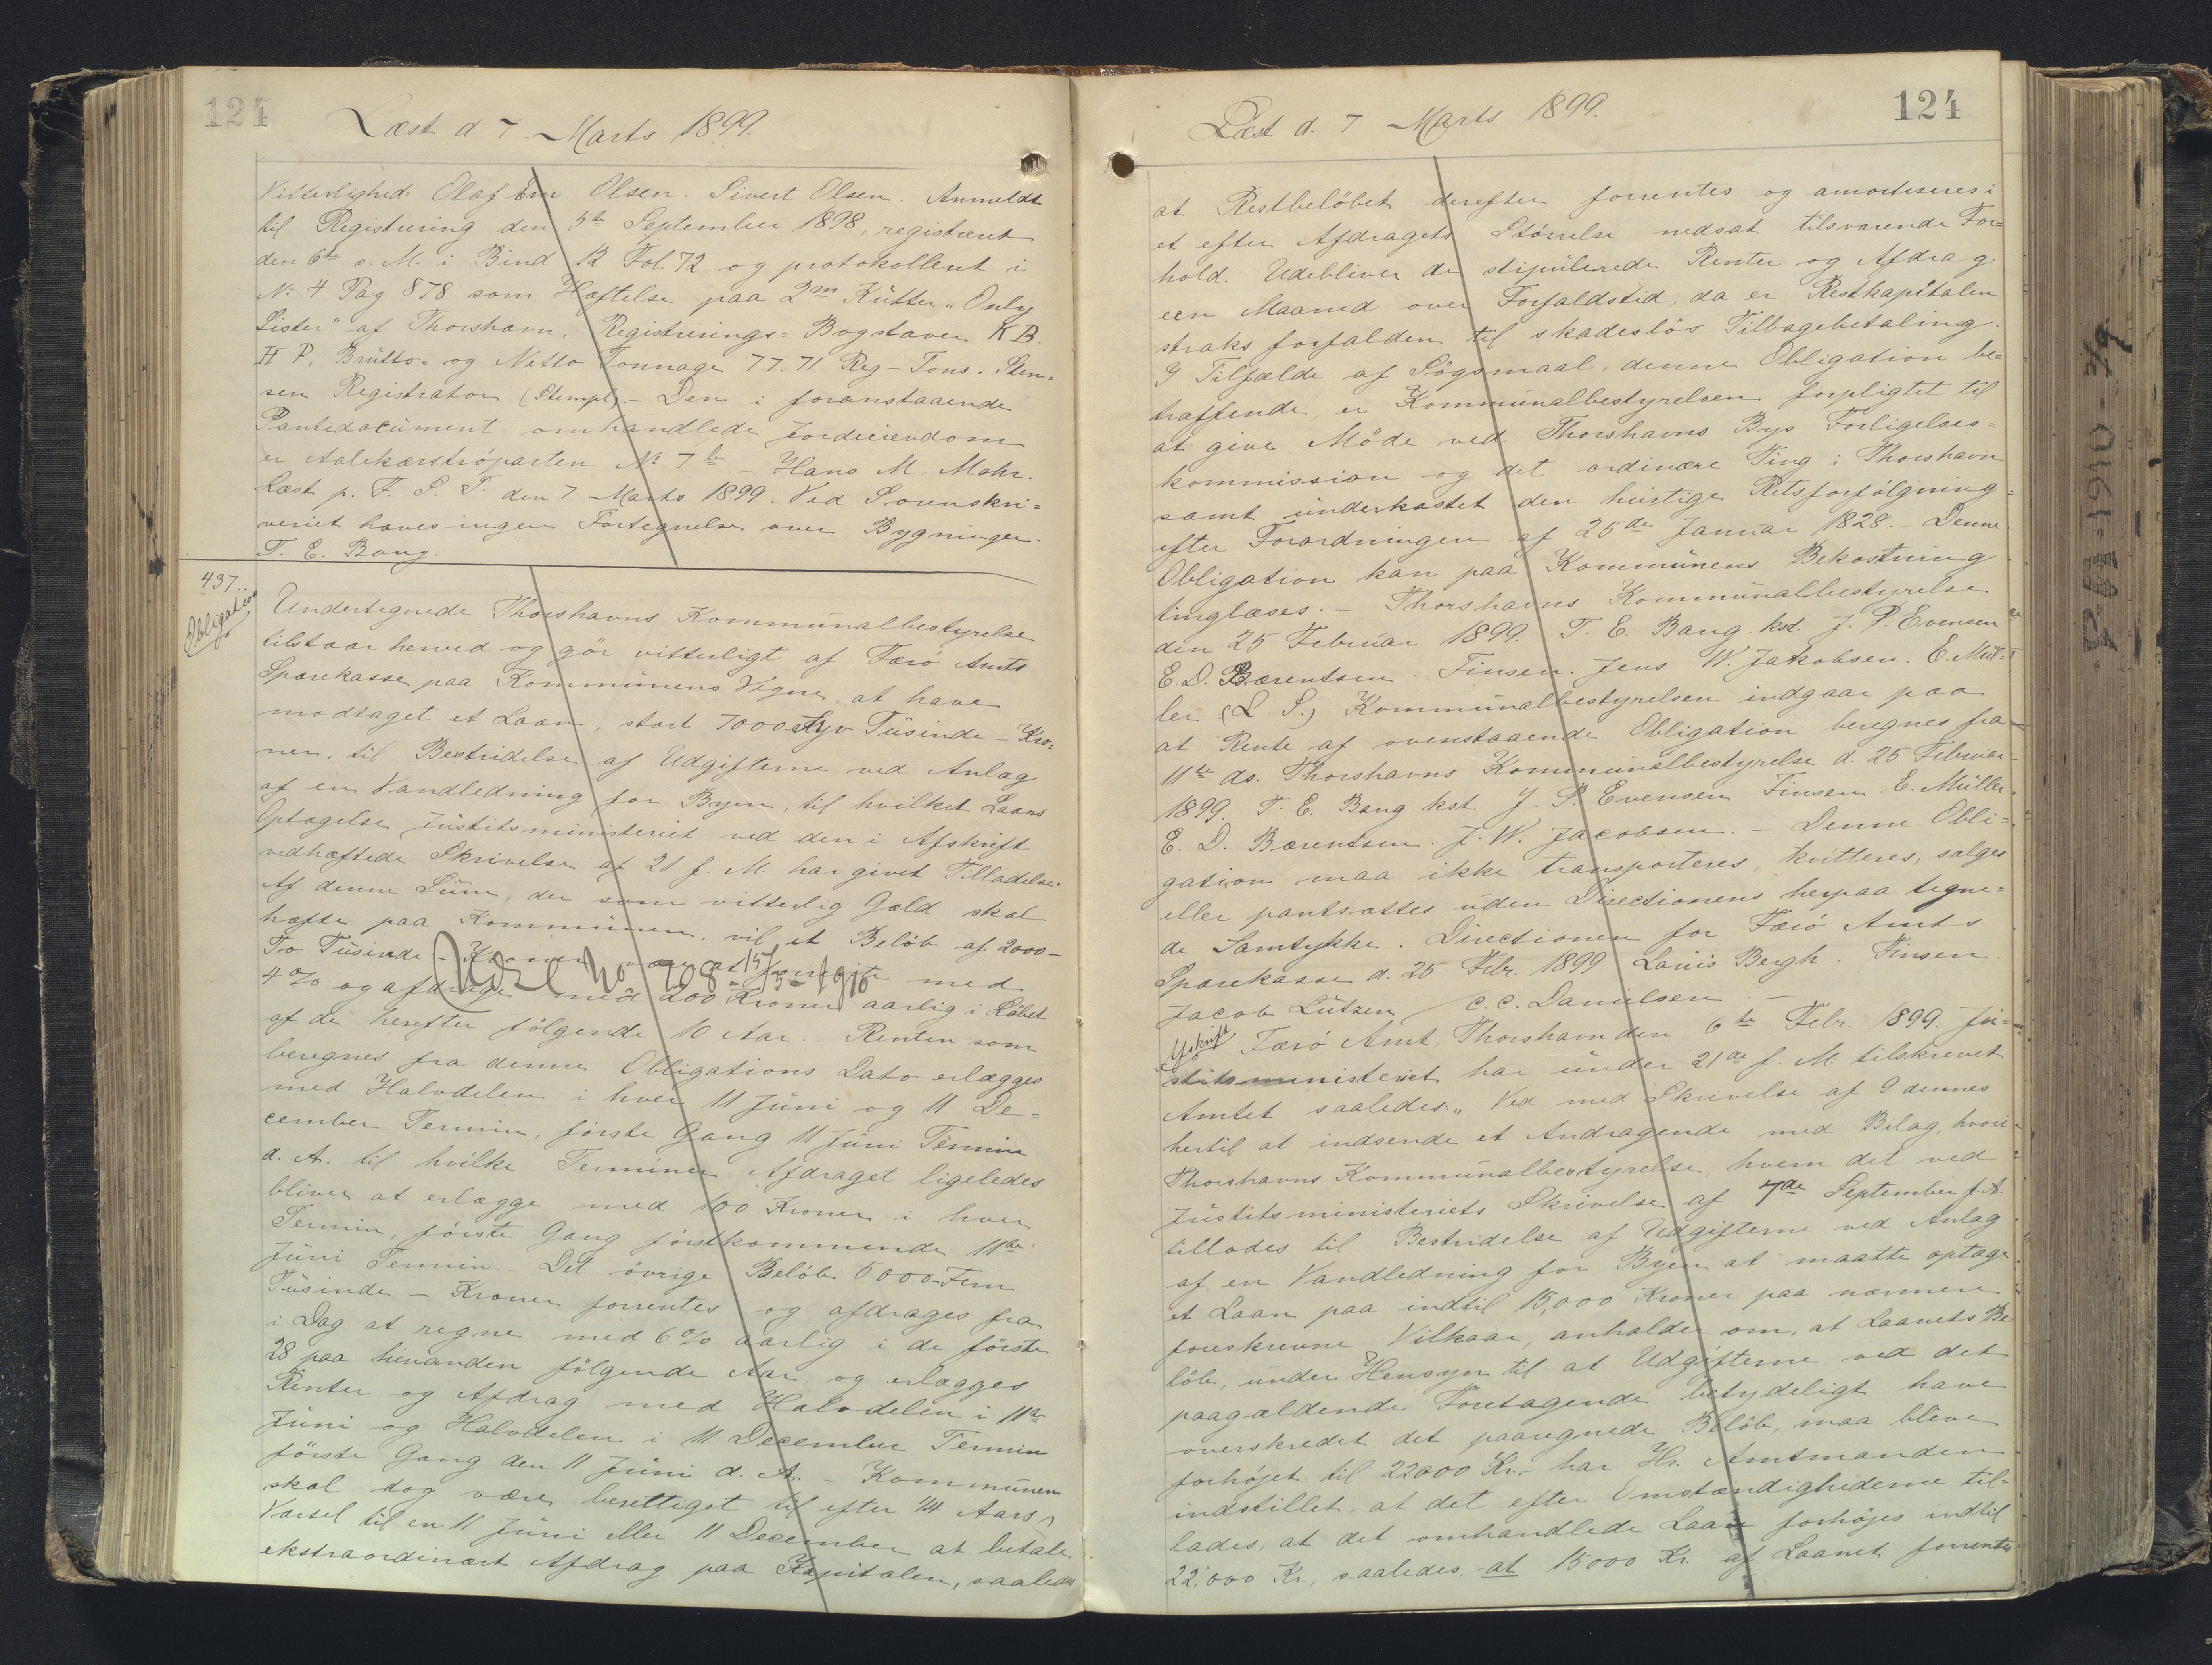 124
Læst d. 7 Marts 1899.
Vitterlighed: Olaf Em Olsen. Sivert Olsen. Anmeldt
til Registrering den 5te September 1898, registreret
den 6te s. M. i Bind 12 Fol. 72 og protokolleret i
No 4 Pag 878 som Hæftelse paa 2m Kutter "Only
Sister" af Thorshavn, Registrerings= Bogstaver K B.
H P, Brutto= og Netto Tonnage 77.71 Reg-Tons. Sten=
sen Registrator (Stempl). - Den i foranstaaende
Pantedocument omhandlede Jordeiendom
er Aalekærströparten No 7 - Hans M. Mohr.
Læst p. F. S. T. den 7 Marts 1899. Ved Sorenskri=
veriet haves ingen Fortegnelse over Bygninger.
T. E. Bang.
437.
Obligation
Undertegnede Thorshavns Kommunalbestyrelse
tilstaar herved og gör vitterligt af Færö Amts
Sparekasse paa Kommunens Vegne, at have
modtaget et Laan, stort 7000 Syv Tusinde - Kro=
ner, til Bestridelse af Udgifterne ved Anlag
af en Vandledning for Byen, til hvilket Laans
Optagelse Justitsministeriet ved den i Afskrift
vedhæftede Skrivelse af 21 f. M. har givet Tilladelse.
Af denne Sum, der som vitterlig Gæld skal
hæfte paa Kommunen, vil et Beløb af 2000-
To Tusinde - Kroner være at forrente med
Udsl No 908 - 15/3 - 1910
4 % og afdrage med 200 Kroner aarlig i Löbet
af de herefter fölgende 10 Aar. - Renten som
beregnes fra denne Obligations Dato erlægges
med Halvdelen i hver 11 Juni og 11 De=
cember Termin, förste Gang 11 Juni Termin
d. A. til hvilke Terminer Afdraget ligeledes
bliver at erlægge med 100 Kroner i hver
Termin, förste Gang förstkommende 11te
Juni Termin. Det övrige Belöb 5000-Fem
Tusinde - Kroner forrentes og afdrages fra
i Dag at regne med 6 % aarlig i de förste
28 paa hinanden fölgende Aar og erlægges
Renter og Afdrag med Halvdelen i 11te
Juni og Halvdelen i 11 December Termin
förste Gang den 11 Juni d. A. - Kommunen
skal dog være berettiget til efter 1/4 Aars
Varsel til en 11 Juni eller 11 December at betale
ekstraordinært Afdrag paa Kapitalen, saaledes
124
Læst d. 7 Marts 1899.
at Restbelöbet derefter forrentes og amortiseres i
et efter Afdragets Störrelse nedsat tilsvarende For=
hold. Udebliver de stipulerede Renter og Afdrag
een Maaned over Forfaldstid, da er Restkapitalen
straks forfalden til skadeslös Tilbagebetaling.
I Tilfælde af Sögsmaal, denne Obligation be=
træffende, er Kommunalbestyrelsen forpligtet til
at give Möde ved Thorshavns Bys Forligelses=
kommission og det ordinære Ting i Thorshavn
samt underkastet den hurtige Retsforfölgning
efter Forordningen af 25de Januar 1828. - Denne
Obligation kan paa Kommunens Bekostning
tinglæses. - Thorshavns Kommunalbestyrelse
den 25 Februar 1899. T. E. Bang kst. J. P. Evensen
E. D. Bærentsen. Finsen. Jens W. Jakobsen. E. Mül=
ler (L. S.) Kommunalbestyrelsen indgaar paa
at Rente af ovenstaaende Obligation beregnes fra
11te ds. Thorshavns Kommunalbestyrelse d. 25 Februar
1899. T. E. Bang kst. J. P. Evensen Finsen. E. Müller.
E. D. Bærentsen. J. W. Jacobsen. - Denne Obli=
gation maa ikke transporteres, kvitteres, sælges
eller pantsættes uden Directionens herpaa tegne=
de Samtykke. Directionen for Færö Amts
Sparekasse d. 25 Febr. 1899 Louis Bergh. Finsen.
Jacob Lützen / C. C. Danielsen. -
Afskrift
Færö Amt, Thorshavn den 6te Febr. 1899. Ju=
stitsministeriet har under 21de f. M. tilskrevet
Amtet saaledes: "Ved med Skrivelse af 9 dennes
hertil at indsende et Andragende med Bilag, hvori
Thorshavns Kommunalbestyrelse, hvem det ved
Justitsministeriets Skrivelse af 7de September f. A.
tillodes til Bestridelse af Udgifterne ved Anlag
af en Vandledning for Byen at maatte optage
et Laan paa indtil 15,000 Kroner paa nærmere
foreskrevne Vilkaar, anholder om, at Laanets Be=
löb, under Hensyn til at Udgifterne ved det
paagældende Foretagende betydeligt have
overskredet det paaregnede Belöb, maa blive
forhöjet til 22000 Kr. - har Hr. Amtmanden
indstillet, at det efter Omstændighederne til=
lades, at det omhandlede Laan forhöjes indtil
22,000 Kr., saaledes, at 15000 Kr. af Laanet forrentes